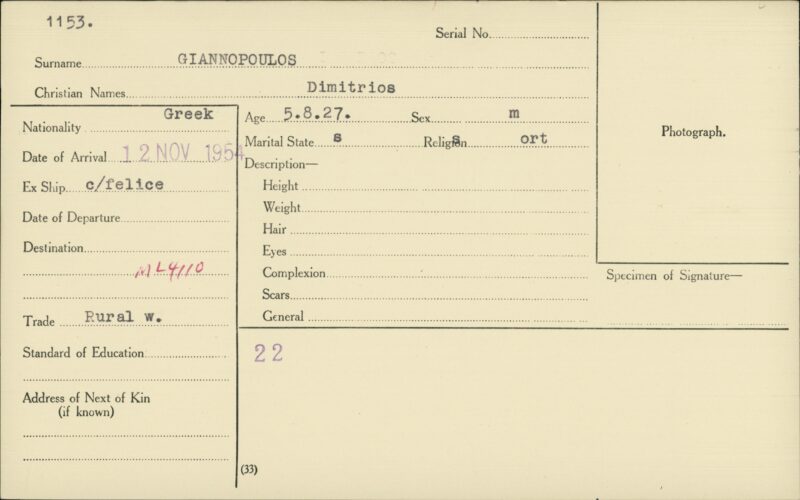 1153.
Serial No.
Surname GIANNOPOULOS
Christian Names Dimitrios
Nationality Greek
Date of Arrival 12 NOV 1954
Ex Ship c/felice
Date of Departure
Destination
ML4110
Trade Rural w.
Standard of Education
Address of Next of Kin
(if known)
Age 5.8.27. Sex m
Marital State s Religion s ort
Description—
Height
Weight
Hair
Eyes
Complexion
Scars
General
22
(33)
Photograph.
Specimen of Signature—